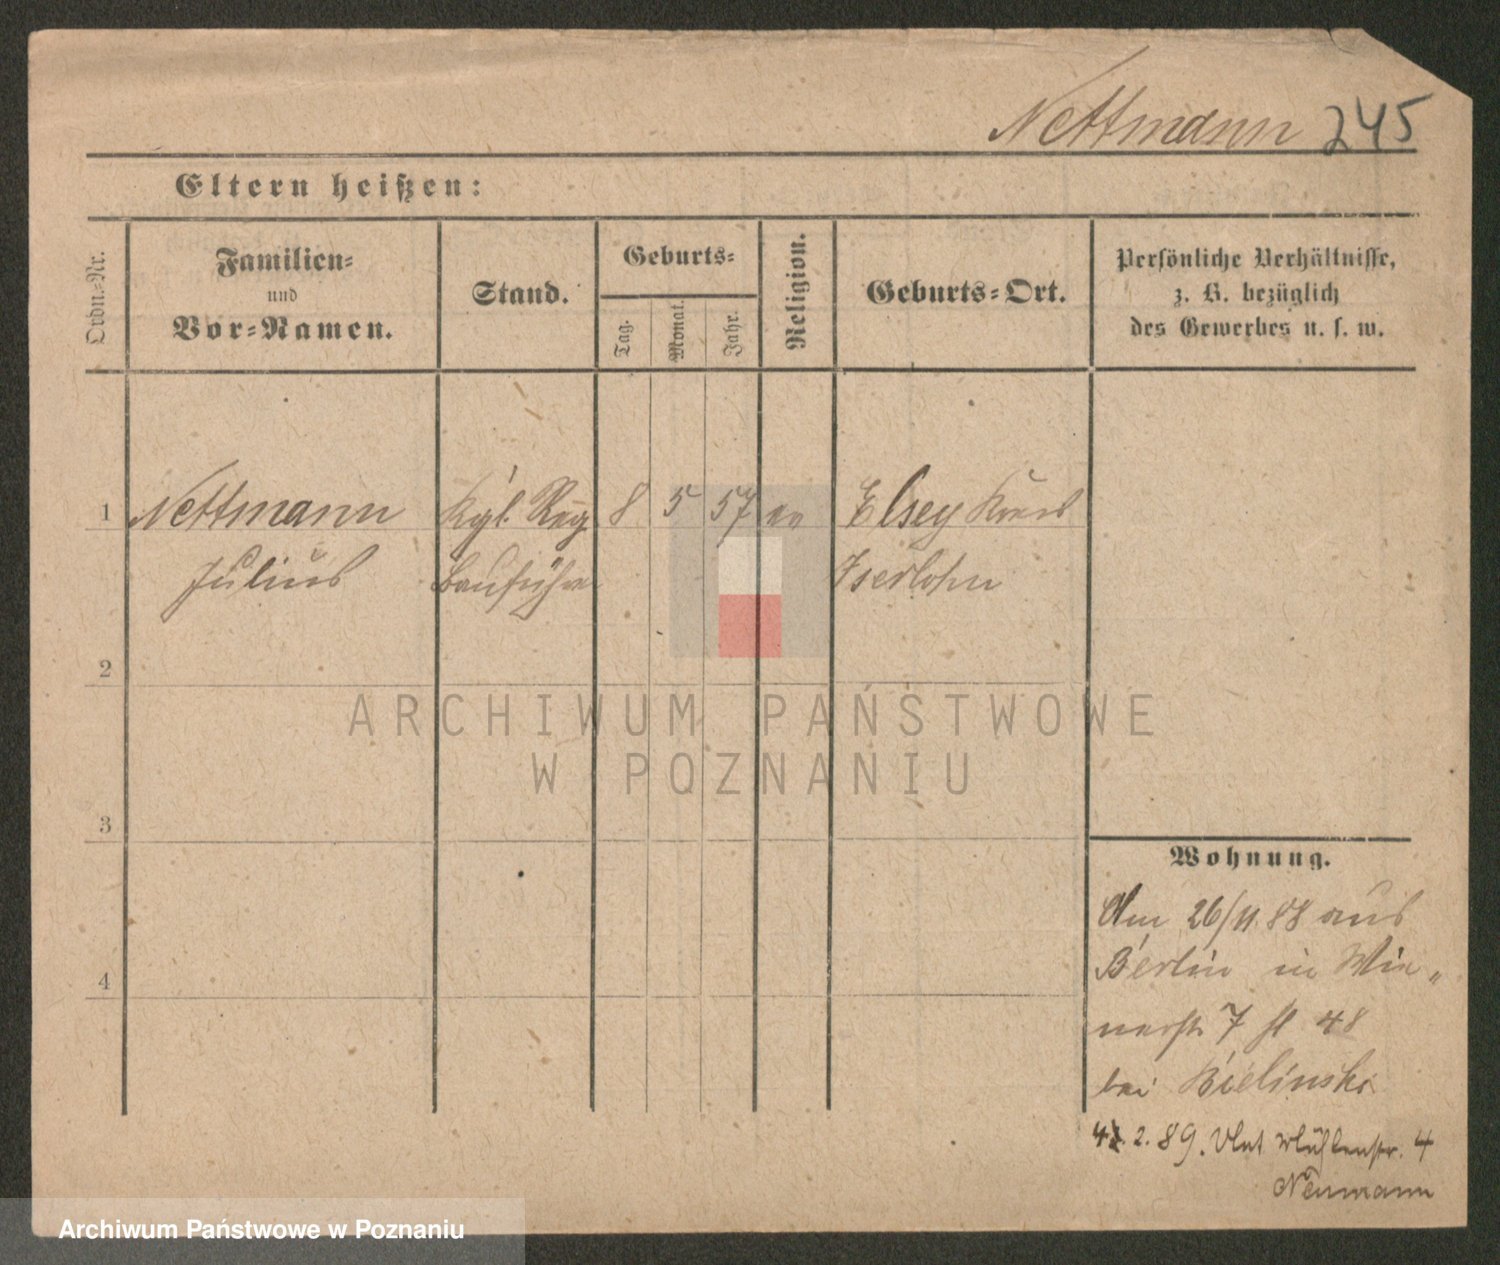 Nettmann 245
Eltern heißen:
Ordn.-Nr.
Familien-
und
Vor-Namen.
Stand.
Geburts-
Tag.
Monat.
Jahr.
Religion.
Geburts-Ort.
Persönliche Verhältnisse,
z. B. bezüglich
des Gewerbes u. s. w.
1 Nettmann Kgl. Reg 8 5 57 ev Elsey Kreis
Julius Bauführer Iserlohn
2
3
4
Wohnung.
Am 26/11.88 aus
Berlin in Wie„
nerstr 7 48
bei Bielinski
2.89. Mühlenstr. 4
Neumann
ARCHIWUM PAŃSTWOWE
W POZNANIU
Archiwum Państwowe w Poznaniu